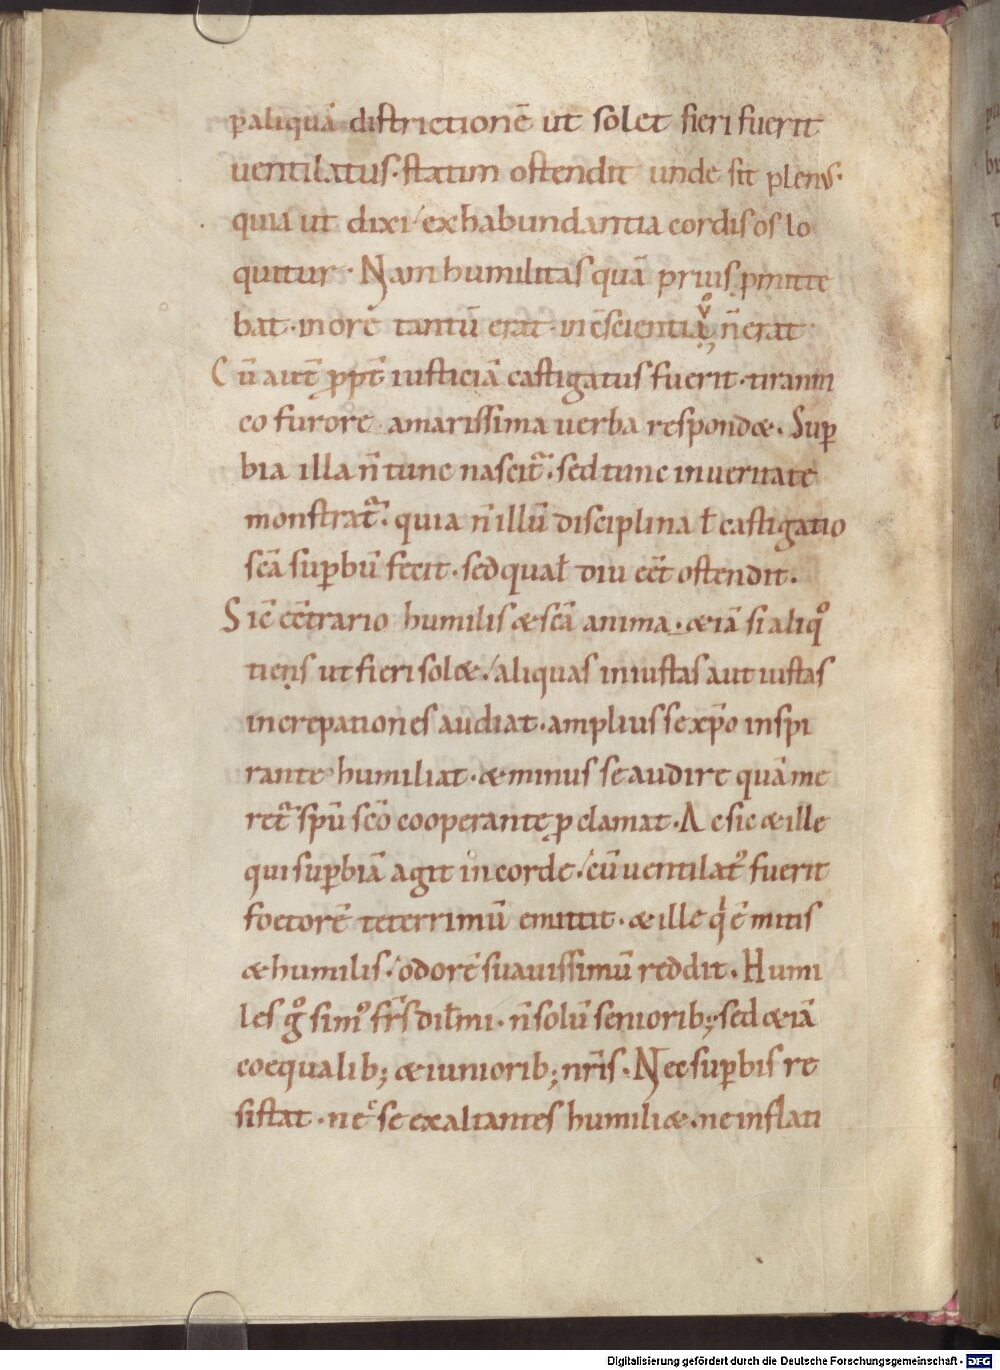 ꝑ aliquā districtionē ut solet fieri fuerit
uentilatus· statim ostendit unde sit plenus·
quia ut dixi ex habundantia cordis os lo
quitur· Nam humilitas quā prius ꝓmitte
bat· in ore tantū erat· in c̄scientia ů n̄ erat
Cū aut̄ ꝓpt̄ iusticiā castigatus fuerit· tiranni
co furore amarissima uerba respondæ. Suꝑ
bia illa n̄ tunc nascit̄· sed tunc in ueritate
monstrat̄· quia n̄ illū disciplina ł castigatio
sc̄a suꝑbū fecit· sed qual̄ diu eēt ostendit.
Sic ec̄trario humilis & sc̄a anima· &iā si aliq̊
tiens ut fieri solæ· aliquas iniustas aut iustas
increpationes audiat· amplius se xp̄o inspi
rante humiliat· & minus se audire quā me
ret̄ sp̄u sc̄o cooperante ꝓclamat· Ac sic & ille
qui suꝑbiā agit in corde· cū uentilat᷒ fuerit
foetorē teterrimū emittit· & ille qⁱ ē mitis
& humilis· odorē suauissimū reddit. Humi
les g̊ sim᷒ fr̄s dil̄mi· n̄ solū seniorib; sed &iā
coequalib; & iuniorib; nr̄is· Nec suꝑbis re
sistat· nec se exaltantes humiliæ· ne inflati
Digitalisierung gefördert durch die Deutsche Forschungsgemeinschaft - DFG